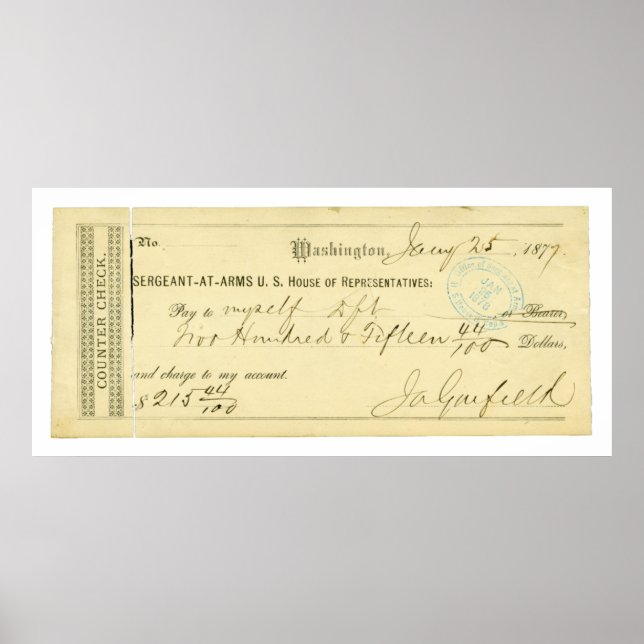 COUNTER CHECK.
No. Washington, Jany 25, 1879.
SERGEANT-AT-ARMS U. S. HOUSE OF REPRESENTATIVES:
Pay to myself Dft or Bearer,
Two Hundred & Fifteen 44/100 Dollars,
and charge to my account.
$ 215 44/100
JAGarfield
JAN